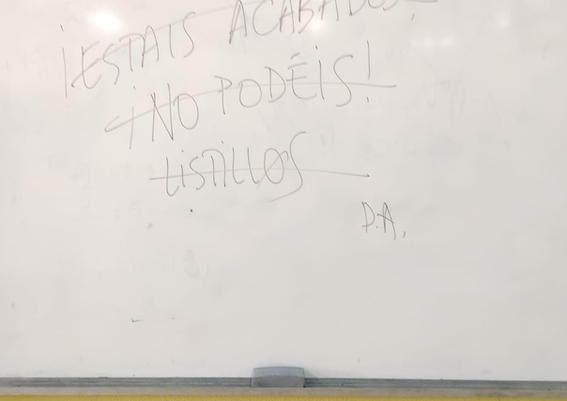 ¡ESTAIS ACABADOS!
¡NO PODÉIS!
LISTILLOS
D.A.